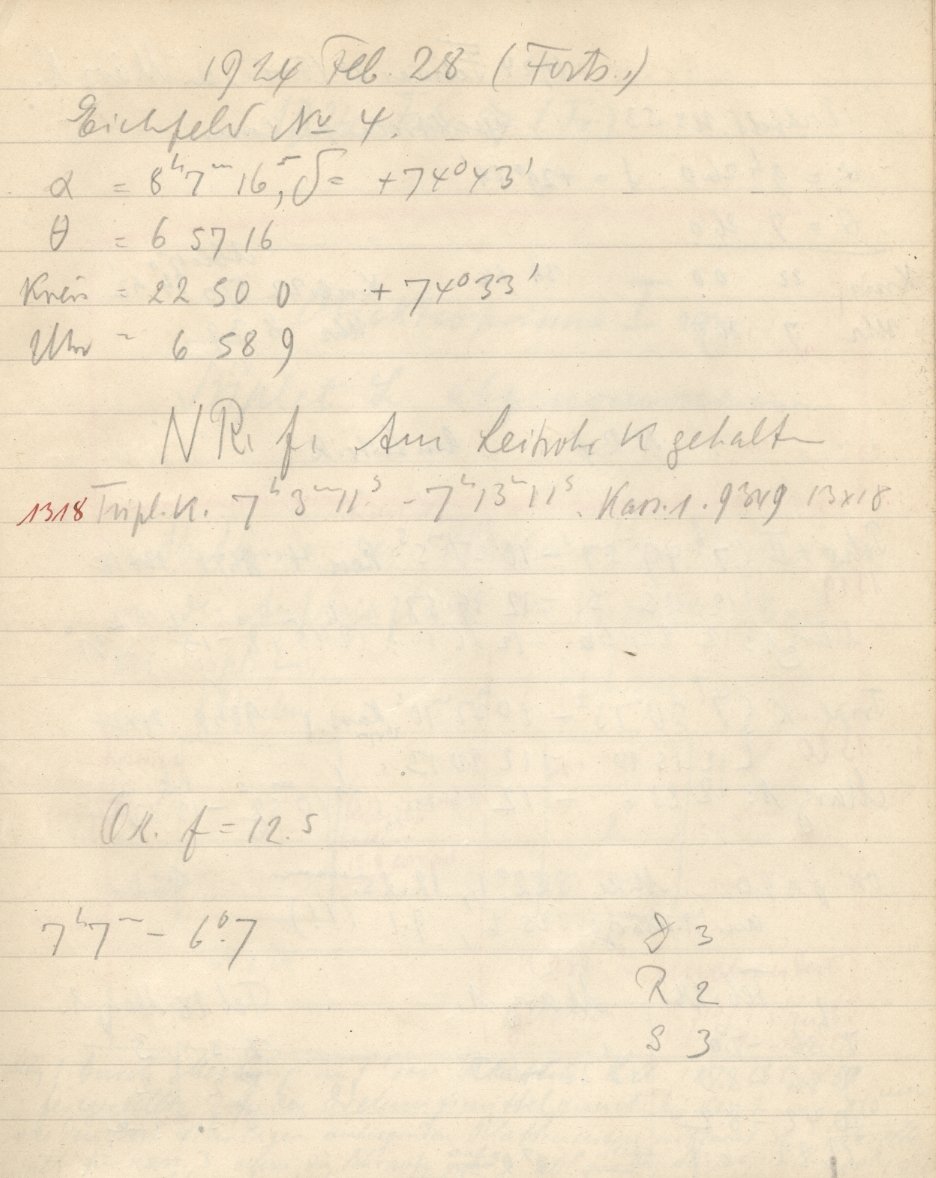 1924 Feb. 28 (Forts.)
Eichfeld No 4.
α = 8h7m16s, δ = +74°43'
θ = 6 57 16
Kreis = 22 50 0 +74°33'
Uhr = 6 58 9
NR. f. Am Leitrohr K gehalten
1318 Tripl. K. 7h3m11s - 7h13m11s. Kass. 1. 13x18
Ok. f = 12.5
7h7m - 6°.7 D 3
R 2
S 3